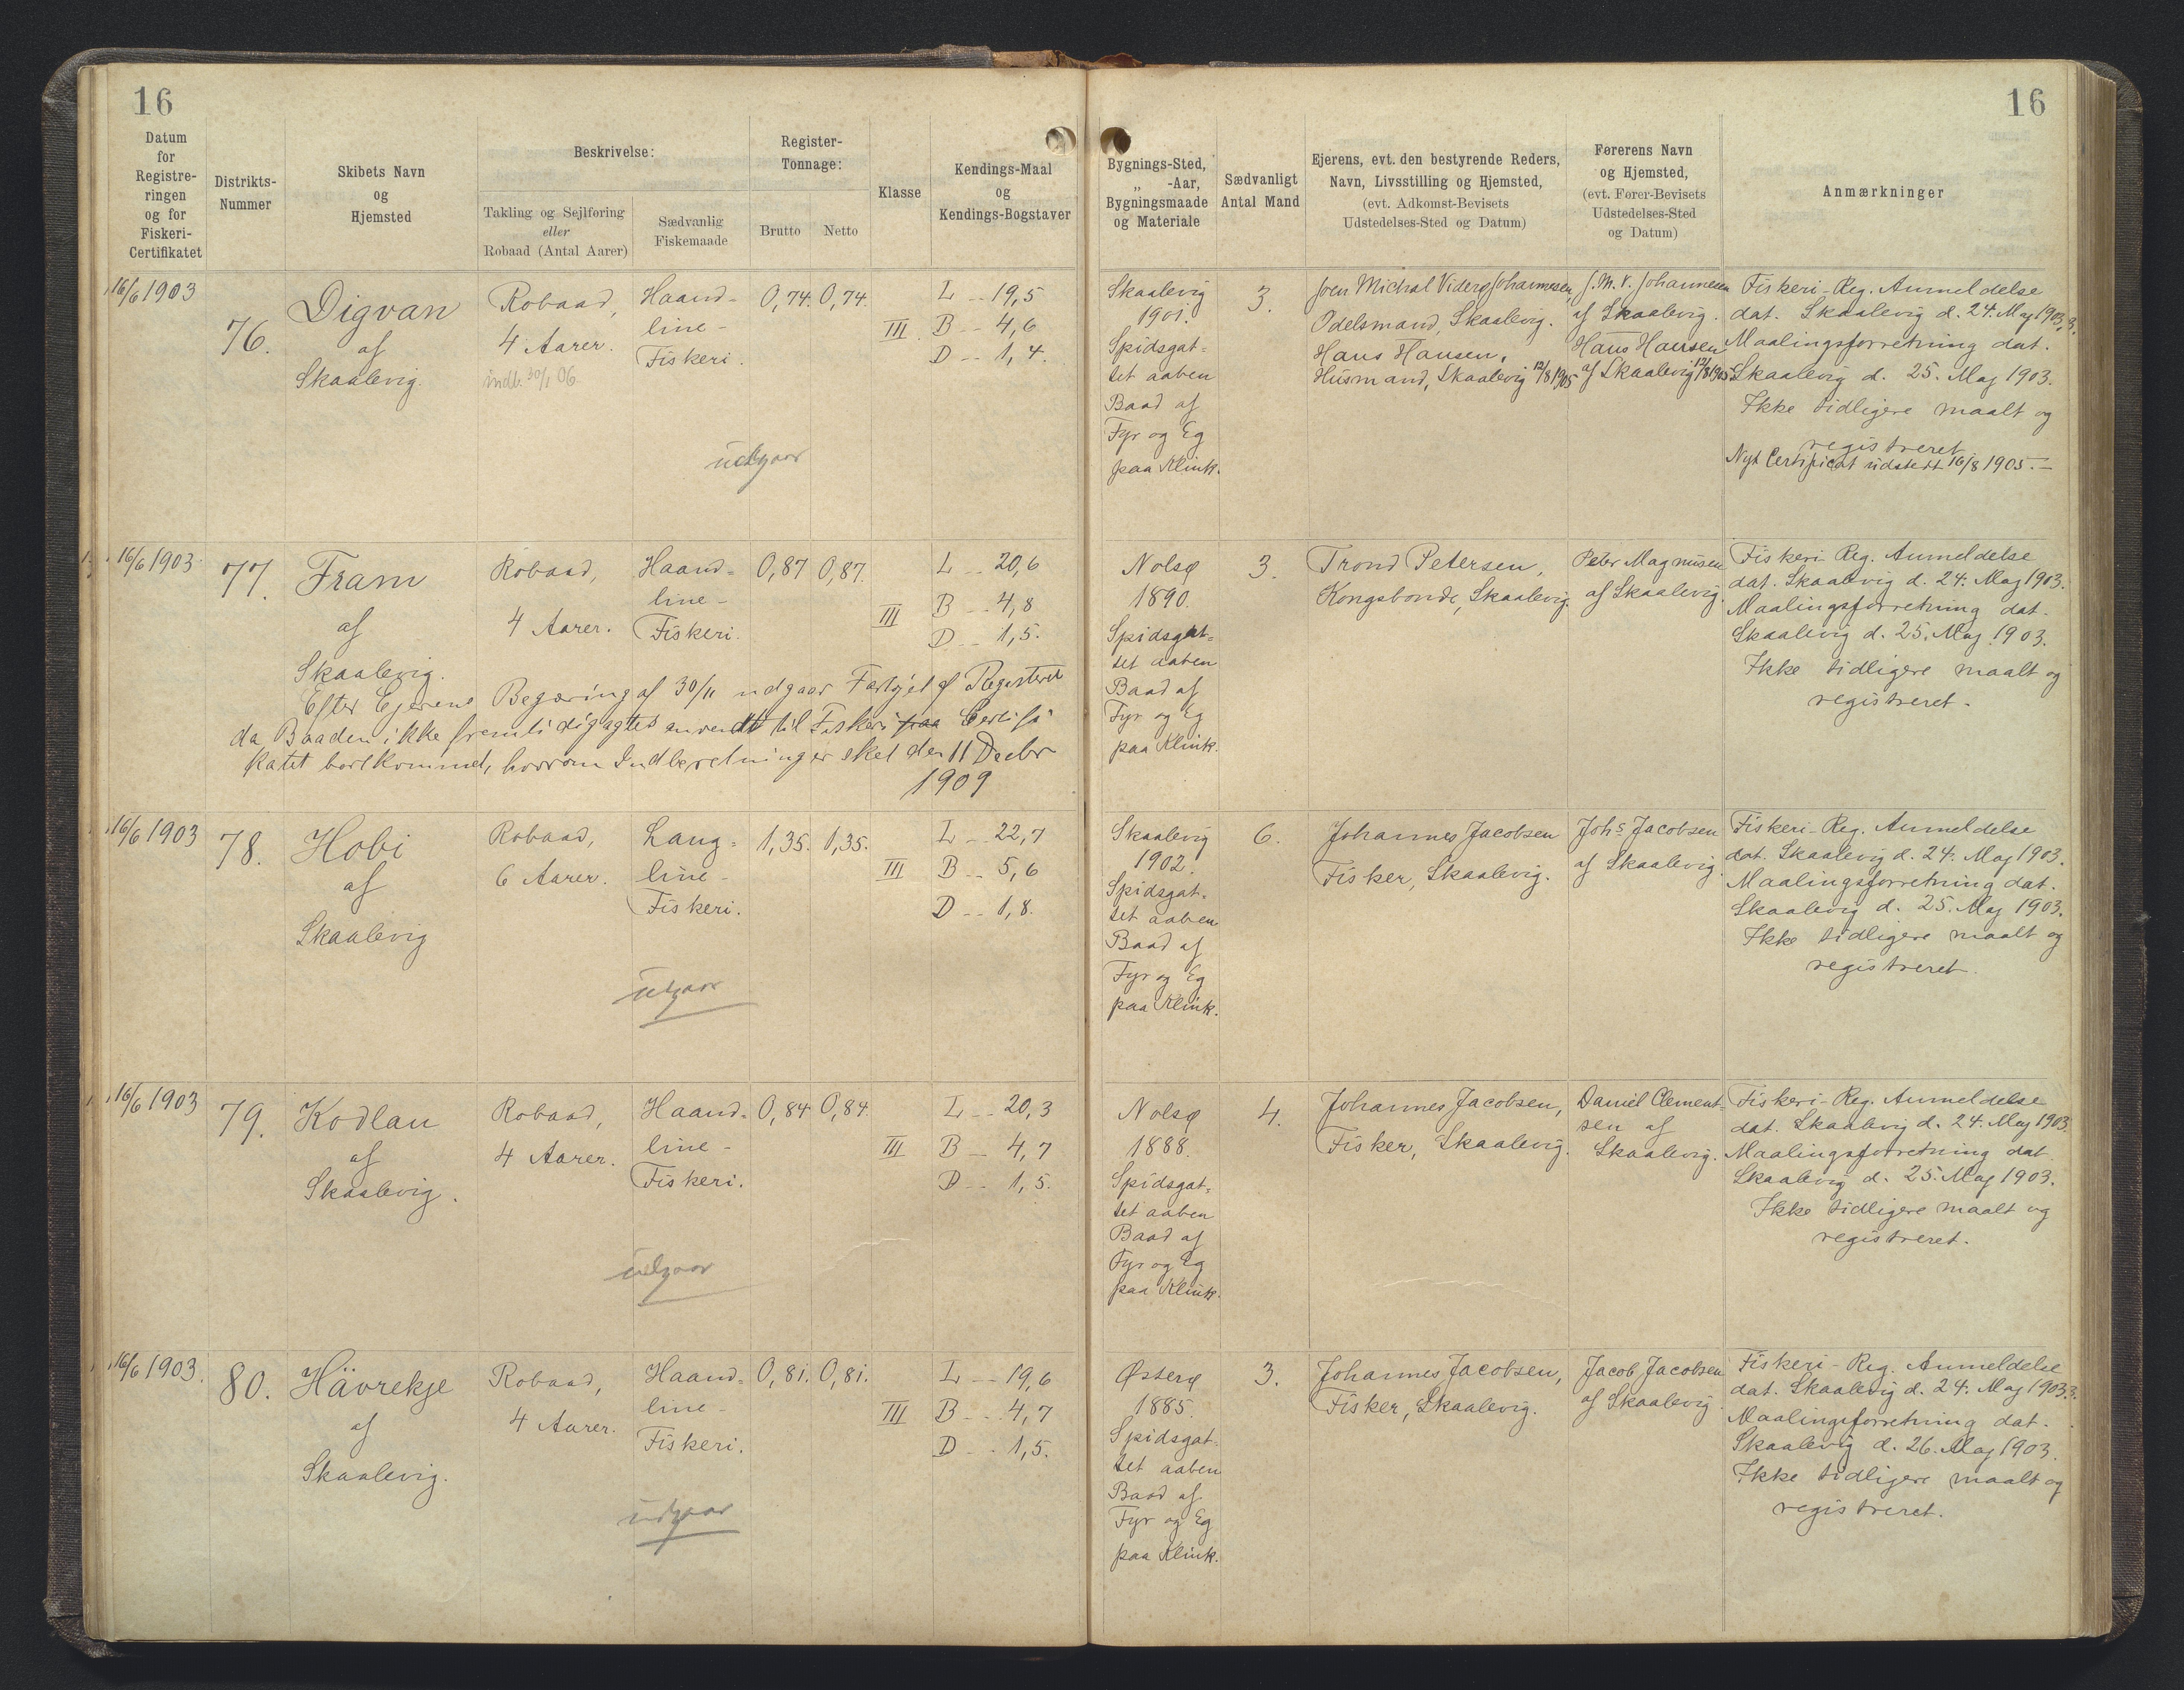 16
16
Datum
for
Registre-
ringen
og for
Fiskeri-
Certifikatet
Distrikts-
Nummer
Skibets Navn
og
Hjemsted
Beskrivelse:
Takling og Sejlføring
eller
Robaad (Antal Aarer)
Sædvanlig
Fiskemaade
Register-
Tonnage:
Brutto
Netto
Klasse
Kendings-Maal
og
Kendings-Bogstaver
Bygnings-Sted,
„ -Aar,
Bygningsmaade
og Materiale
Sædvanligt
Antal Mand
Ejerens, evt. den bestyrende Reders,
Navn, Livsstilling og Hjemsted,
(evt. Adkomst-Bevisets
Udstedelses-Sted og Datum)
Førerens Navn
og Hjemsted,
(evt. Fører-Bevisets
Udstedelses-Sted
og Datum)
Anmærkninger
16/6 1903
76.
Digvan
af
Skaalevig.
Robaad,
4 Aarer.
indb. 30/1 06
Haand-
line-
Fiskeri.
0,74.
0,74.
III.
L -- 19,5
B -- 4,6
D -- 1,4.
udgaar
Skaalevig
1901.
Spidsgat-
tet aaben
Baad af
Fyr og Eg
paa Klink.
3.
Joen Michal Viderø Johannesen,
Odelsmand, Skaalevig.
Hans Hansen,
Husmand, Skaalevig 12/8 1905
J. M. V. Johannesen
af Skaalevig.
Hans Hansen
af Skaalevig 12/8 1905
Fiskeri-Reg. Anmeldelse
dat. Skaalevig d. 24. Maj 1903.
Maalingsforretning dat.
Skaalevig d. 25. Maj 1903.
Ikke tidligere maalt og
registreret
Nyt Certificat udstedt 16/8 1905. -
16/6 1903.
77.
Fram
af
Skaalevig.
Robaad,
4 Aarer.
Haand-
line-
Fiskeri.
0,87
0,87.
III
L -- 20,6
B -- 4,8
D -- 1,5.
Efter Ejerens Begæring af 30/11 udgaar Fartøjet af Registeret
da Baaden ikke fremtidig agtes anvendt til Fiskeri paa Certifi
katet bortkommet, hvorom Indberetning er sket den 11 Decbr
1909
Nolsø
1890.
Spidsgat-
tet aaben
Baad af
Fyr og Eg
paa Klink.
3.
Trond Petersen,
Kongsbonde, Skaalevig.
Peter Magnusen
af Skaalevig.
Fiskeri-Reg. Anmeldelse
dat. Skaalevig d. 24. Maj 1903.
Maalingsforretning dat.
Skaalevig d. 25. Maj 1903.
Ikke tidligere maalt og
registreret.
16/6 1903
78.
Hobi
af
Skaalevig
Robaad,
6 Aarer.
Lang-
line-
Fiskeri.
1,35.
1,35.
III
L -- 22,7
B -- 5,6
D -- 1,8.
udgaar
Skaalevig
1902.
Spidsgat-
tet aaben
Baad af
Fyr og Eg
paa Klink.
6.
Johannes Jacobsen
Fisker, Skaalevig.
Johs Jacobsen
af Skaalevig.
Fiskeri-Reg. Anmeldelse
dat. Skaalevig d. 24. Maj 1903.
Maalingsforretning dat.
Skaalevig d. 25. Maj 1903.
Ikke tidligere maalt og
registreret.
16/6 1903
79.
Kodlan
af
Skaalevig.
Robaad,
4 Aarer.
Haand-
line-
Fiskeri.
0,84
0,84.
III
L -- 20,3
B -- 4,7
D -- 1,5.
udgaar
Nolsø
1888.
Spidsgat-
tet aaben
Baad af
Fyr og Eg
paa Klink.
4.
Johannes Jacobsen,
Fisker, Skaalevig.
Daniel Clement-
sen af
Skaalevig.
Fiskeri-Reg. Anmeldelse
dat. Skaalevig d. 24. Maj 1903.
Maalingsforretning dat.
Skaalevig d. 25. Maj 1903.
Ikke tidligere maalt og
registreret.
16/6 1903.
80.
Hävrekje
af
Skaalevig.
Robaad,
4 Aarer.
Haand-
line-
Fiskeri.
0,81.
0,81.
III
L -- 19,6
B -- 4,7
D -- 1,5.
udgaar
Østerø
1885.
Spidsgat-
tet aaben
Baad af
Fyr og Eg
paa Klink.
3.
Johannes Jacobsen,
Fisker, Skaalevig.
Jacob Jacobsen
af Skaalevig
Fiskeri-Reg. Anmeldelse
dat. Skaalevig d. 24. Maj 1903.
Maalingsforretning dat.
Skaalevig d. 26. Maj 1903.
Ikke tidligere maalt og
registreret.